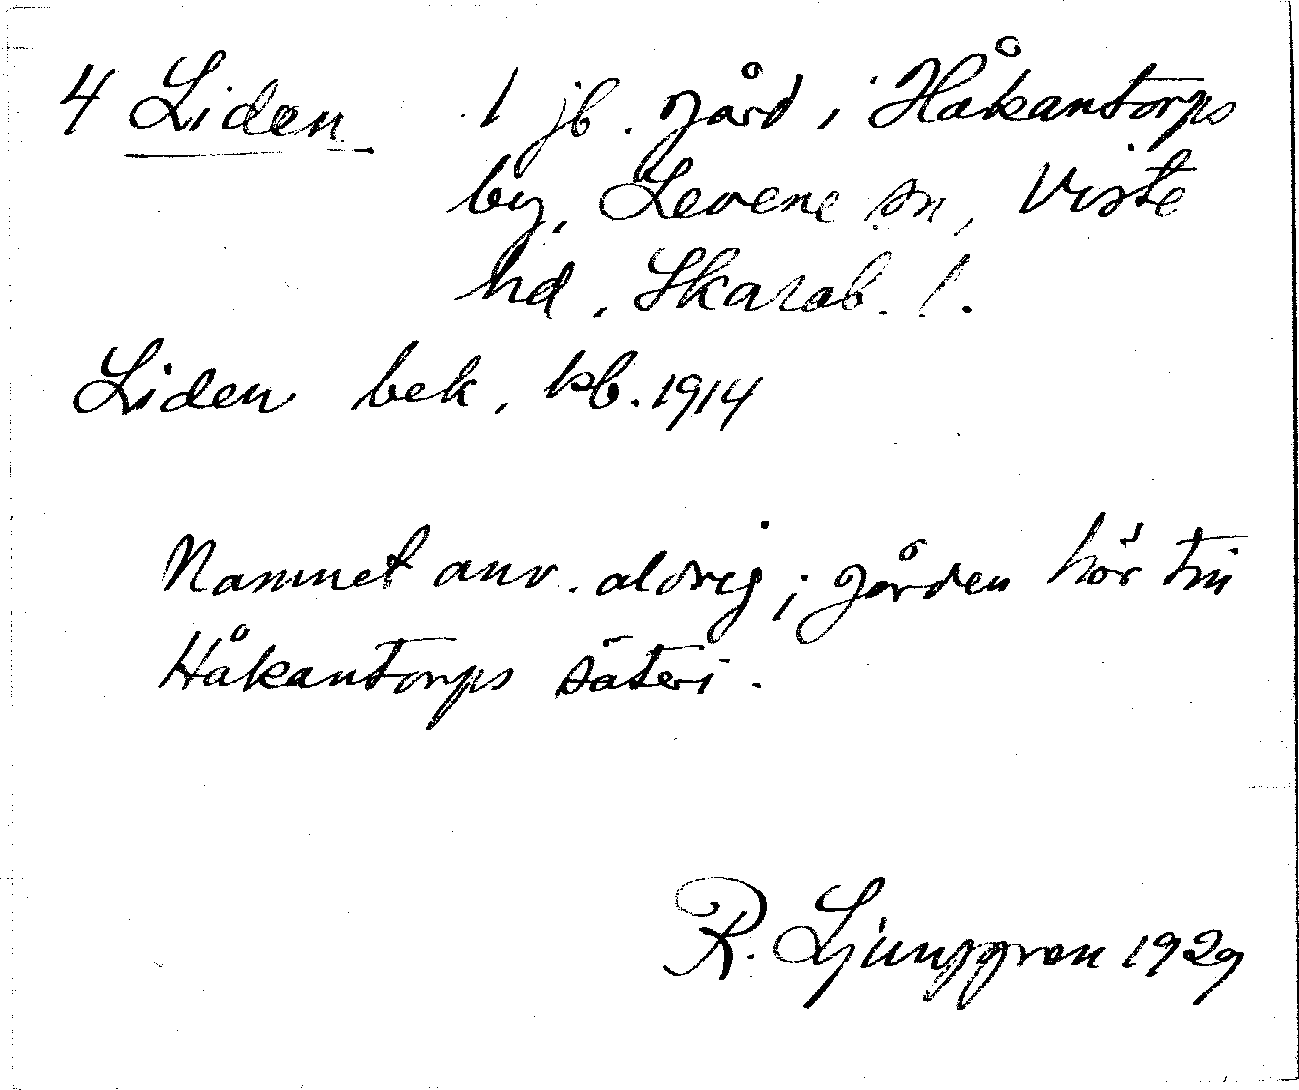 4 Liden 1 jb. gård i Håkantorps
by, Levene sn, Viste
hd. Skarab. l.
Liden bek. kb. 1914
Namnet anv. aldrig; gården hör till
Håkantorps säteri.
R. Ljunggren 1929